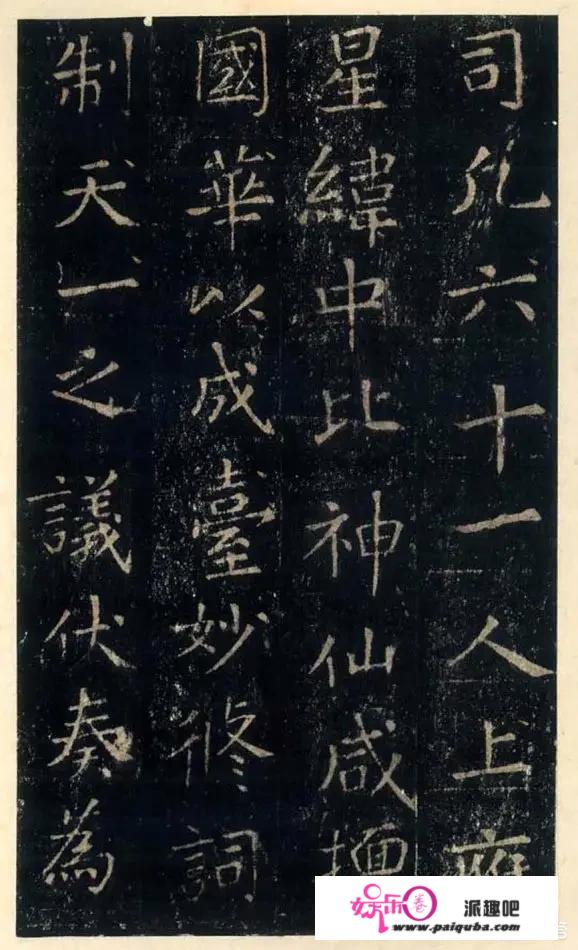 司凡六十一人上應
星緯中比神仙咸
國華以成臺妙修詞
制天下之議伏奏為
娱乐圈 派趣吧
www.paiquba.com